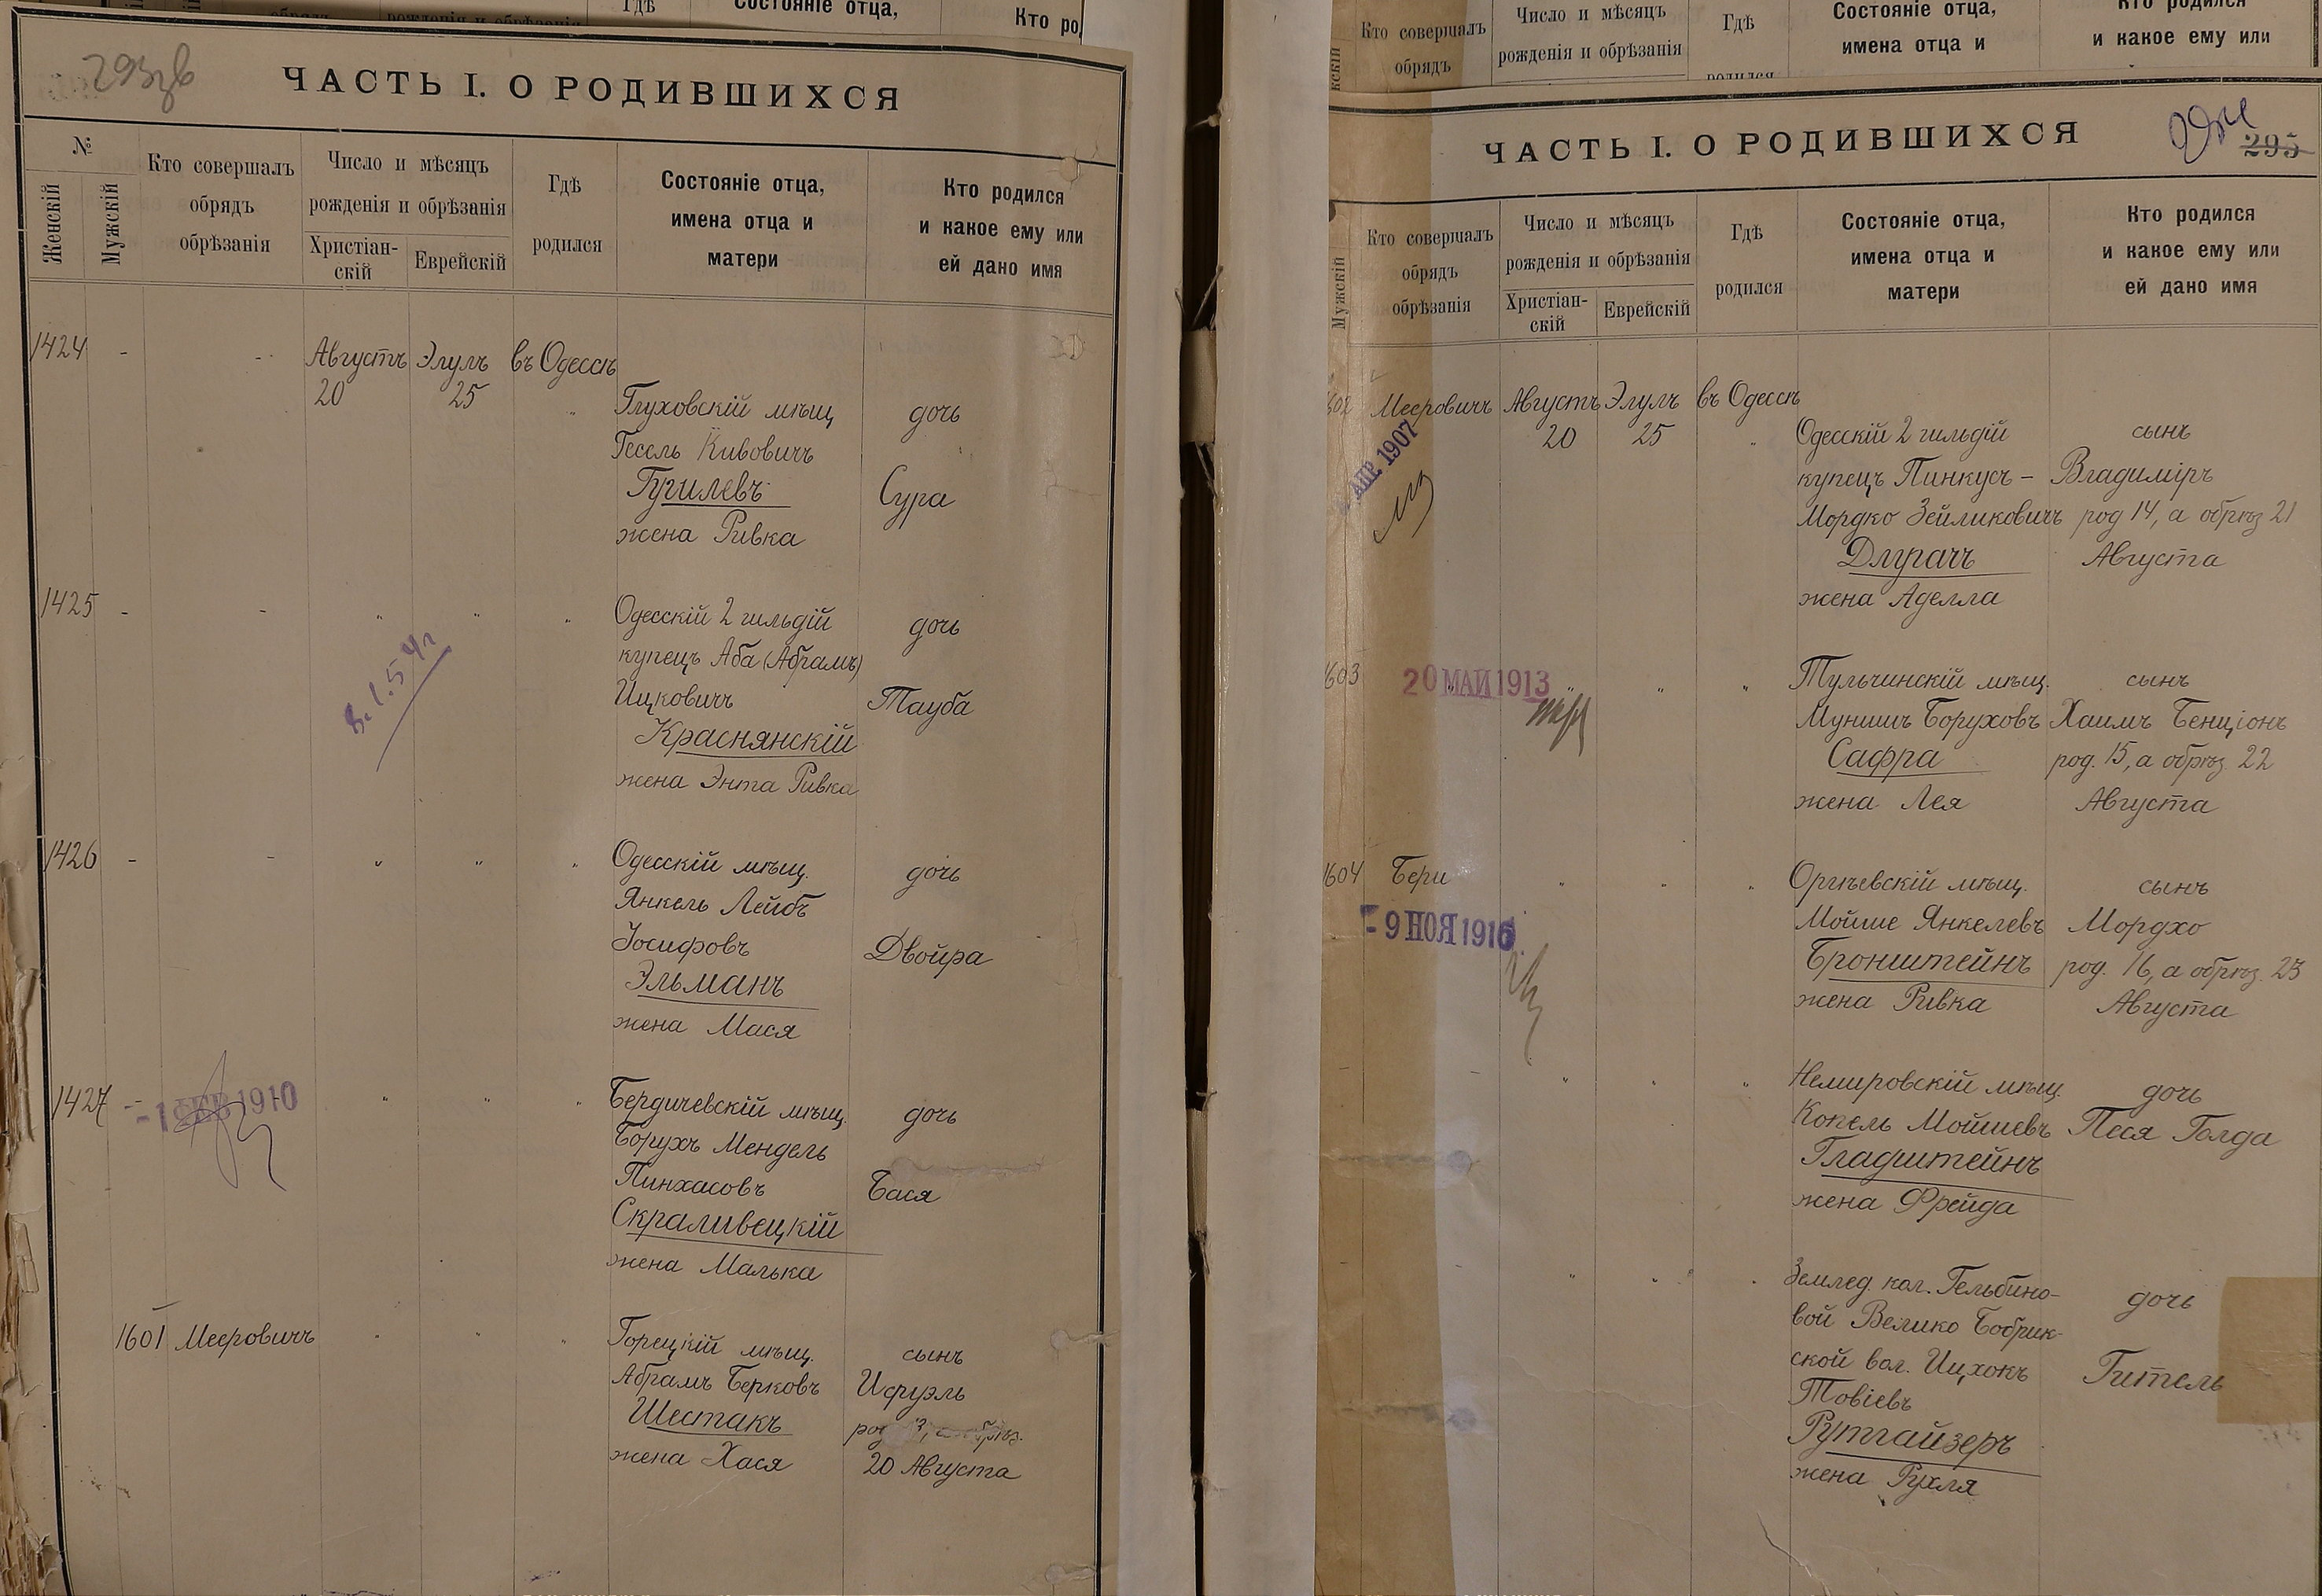 рожденія и обрѣзанія
Гдѣ
Состояніе отца,
Кто ро
293
ЧАСТЬ I. О РОДИВШИХСЯ
№
Женскій
Мужскій
Кто совершалъ
обрядъ
обрѣзанія
Число и мѣсяцъ
рожденія и обрѣзанія
Христіан-
скій
Еврейскій
Гдѣ
родился
Состояніе отца,
имена отца и
матери
Кто родился
и какое ему или
ей дано имя
1424 - - Августъ Элулъ въ Одессѣ
20 25 "
Глуховскій мѣщ дочь
Гесель Кивовичъ
Гугилевъ Сура
жена Ривка
1425 - - " " "
Одесскій 2 гильдій дочь
купецъ Аба (Абрамъ)
Ицковичъ Тауба
Краснянскій
жена Энта Ривка
8.1.54г
1426 - - " " "
Одесскій мѣщ. дочь
Янкель Лейбъ
Іосифовъ Двойра
Эльманъ
жена Мася
1427 - " " "
-1 ФЕВ 1910
Бердичевскій мѣщ. дочь
Борухъ Мендель
Пинхасовъ Бася
Скраливецкій
жена Малька
1601 Мееровичъ " " "
Горецкій мѣщ. сынъ
Абрамъ Берковъ Исруэль
Шестакъ
жена Хася 20 Августа
Кто совершалъ
обрядъ
Число и мѣсяцъ
рожденія и обрѣзанія
Гдѣ
родился
Состояніе отца,
имена отца и
Кто родился
и какое ему или
ЧАСТЬ I. О РОДИВШИХСЯ
295
Мужскій
Кто совершалъ
обрядъ
обрѣзанія
Число и мѣсяцъ
рожденія и обрѣзанія
Христіан-
скій
Еврейскій
Гдѣ
родился
Состояніе отца,
имена отца и
матери
Кто родился
и какое ему или
ей дано имя
1602 Мееровичъ Августъ Элулъ въ Одессѣ
20 25 "
АПР. 1907
Одесскій 2 гильдій сынъ
купецъ Пинкусъ - Владиміръ
Мордко Зейликовичъ род 14, а обрѣз 21
Длугачъ Августа
жена Аделла
1603 " " " "
20 МАЙ 1913
Тульчинскій мѣщ. сынъ
Мунишъ Боруховъ Хаимъ Бенціонъ
Сафра род. 15, а обрѣз. 22
жена Лея Августа
1604 Бери " " "
- 9 НОЯ 1916
Оргѣевскій мѣщ. сынъ
Мойше Янкелевъ Мордхо
Бронштейнъ род. 16, а обрѣз. 23
жена Ривка Августа
- " " "
Немировскій мѣщ. дочь
Копель Мойшевъ Песя Голда
Гладштейнъ
жена Фрейда
" " "
Землед. кол. Гельбино-
вой Велико Бобрик- дочь
ской вол. Ицхокъ Гитель
Товіевъ
Рутгайзеръ
жена Рухля